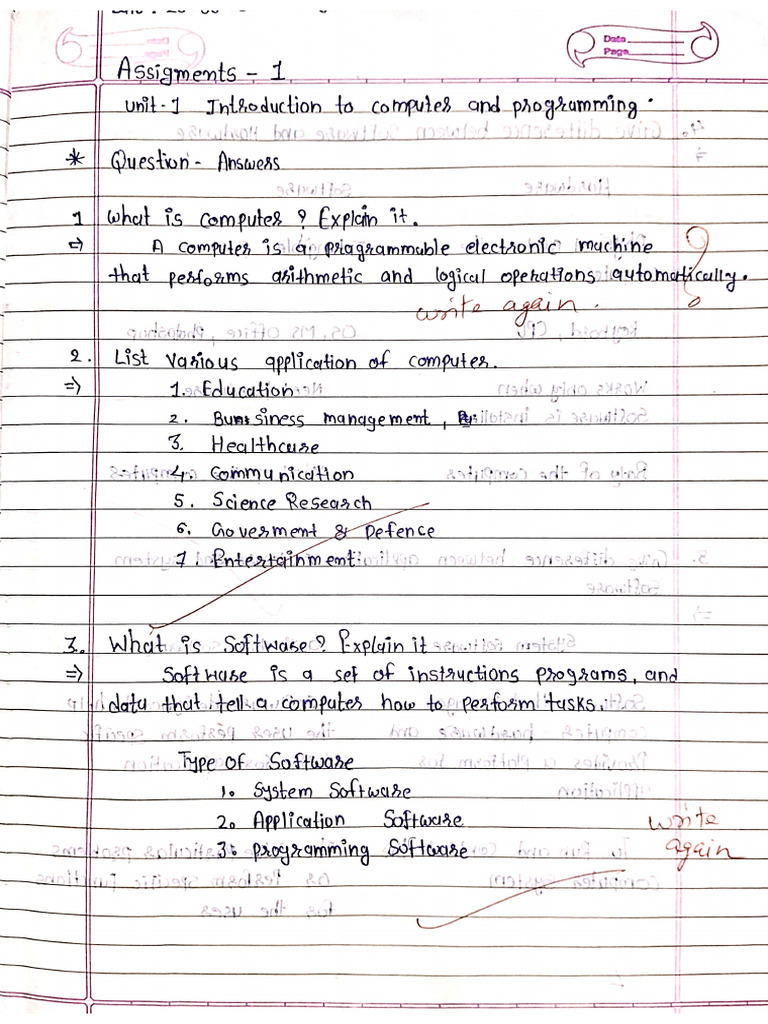 Date
Page
Assigments - 1
unit-1 Introduction to computer and programming.
* Question - Answers
1 What is computer? Explain it.
⇒ A computer is a priagrammable electronic machine
that performs arithmetic and logical operations automatically.
write again.
2. List various application of computer.
⇒ 1. Education
2. Business management,
3. Healthcare
4. Communication
5. Science Research
6. Goverment & Defence
7. Entertainment
3. What is Software? Explain it
⇒ Software is a set of instructions programs, and
data that tell a computer how to perform tasks.
Type of Software
1. System Software
2. Application Software
3. programming Software
write
again